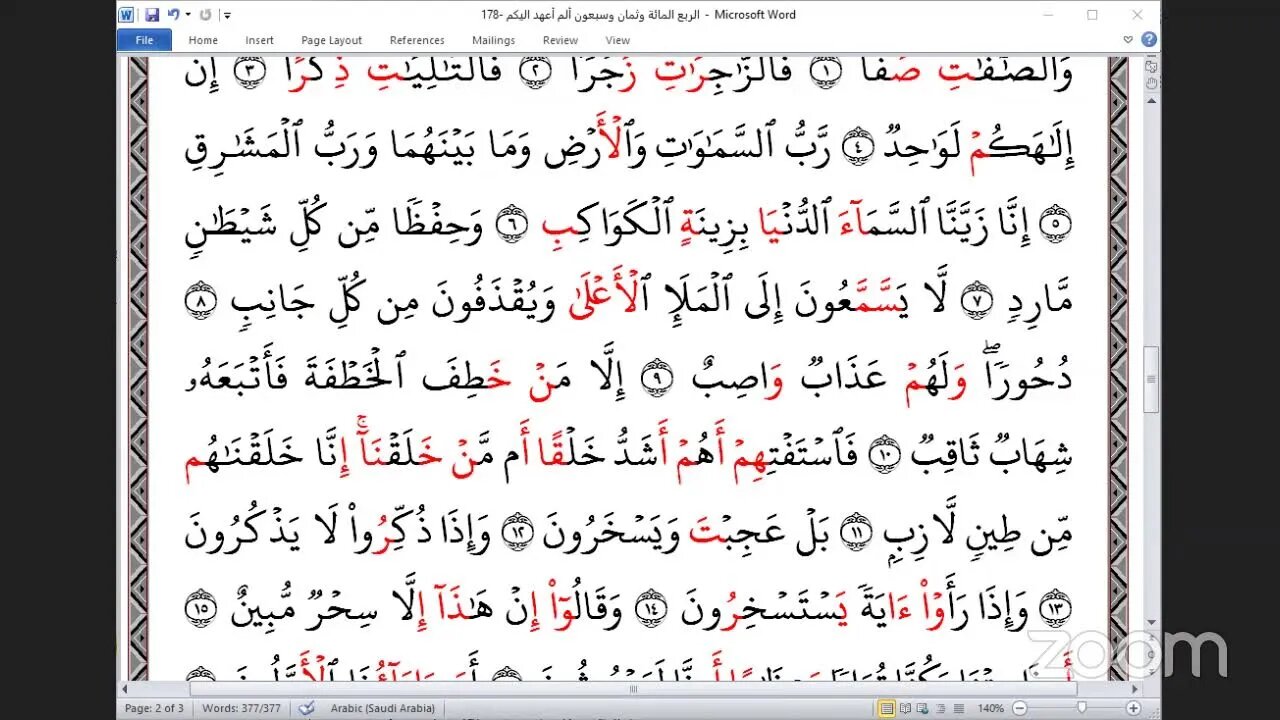 الربع المائة وثمان وسبعون ألم أعهد اليكم -178 - Microsoft Word
File Home Insert Page Layout References Mailings Review View
وَٱلصَّٰٓفَّٰتِ صَفّٗا ١ فَٱلزَّٰجِرَٰتِ زَجۡرٗا ٢ فَٱلتَّٰلِيَٰتِ ذِكۡرًا ٣ إِنَّ
إِلَٰهَكُمۡ لَوَٰحِدٞ ٤ رَّبُّ ٱلسَّمَٰوَٰتِ وَٱلۡأَرۡضِ وَمَا بَيۡنَهُمَا وَرَبُّ ٱلۡمَشَٰرِقِ
٥ إِنَّا زَيَّنَّا ٱلسَّمَآءَ ٱلدُّنۡيَا بِزِينَةٍ ٱلۡكَوَاكِبِ ٦ وَحِفۡظٗا مِّن كُلِّ شَيۡطَٰنٖ
مَّارِدٖ ٧ لَّا يَسَّمَّعُونَ إِلَى ٱلۡمَلَإِ ٱلۡأَعۡلَىٰ وَيُقۡذَفُونَ مِن كُلِّ جَانِبٖ ٨
دُحُورٗاۖ وَلَهُمۡ عَذَابٞ وَاصِبٌ ٩ إِلَّا مَنۡ خَطِفَ ٱلۡخَطۡفَةَ فَأَتۡبَعَهُۥ
شِهَابٞ ثَاقِبٞ ١٠ فَٱسۡتَفۡتِهِمۡ أَهُمۡ أَشَدُّ خَلۡقًا أَم مَّنۡ خَلَقۡنَآۚ إِنَّا خَلَقۡنَٰهُم
مِّن طِينٖ لَّازِبِۭ ١١ بَلۡ عَجِبۡتَ وَيَسۡخَرُونَ ١٢ وَإِذَا ذُكِّرُواْ لَا يَذۡكُرُونَ
١٣ وَإِذَا رَأَوۡاْ ءَايَةٗ يَسۡتَسۡخِرُونَ ١٤ وَقَالُوٓاْ إِنۡ هَٰذَآ إِلَّا سِحۡرٞ مُّبِينٌ ١٥
zoom
Page: 2 of 3 Words: 377/377 Arabic (Saudi Arabia) 140%